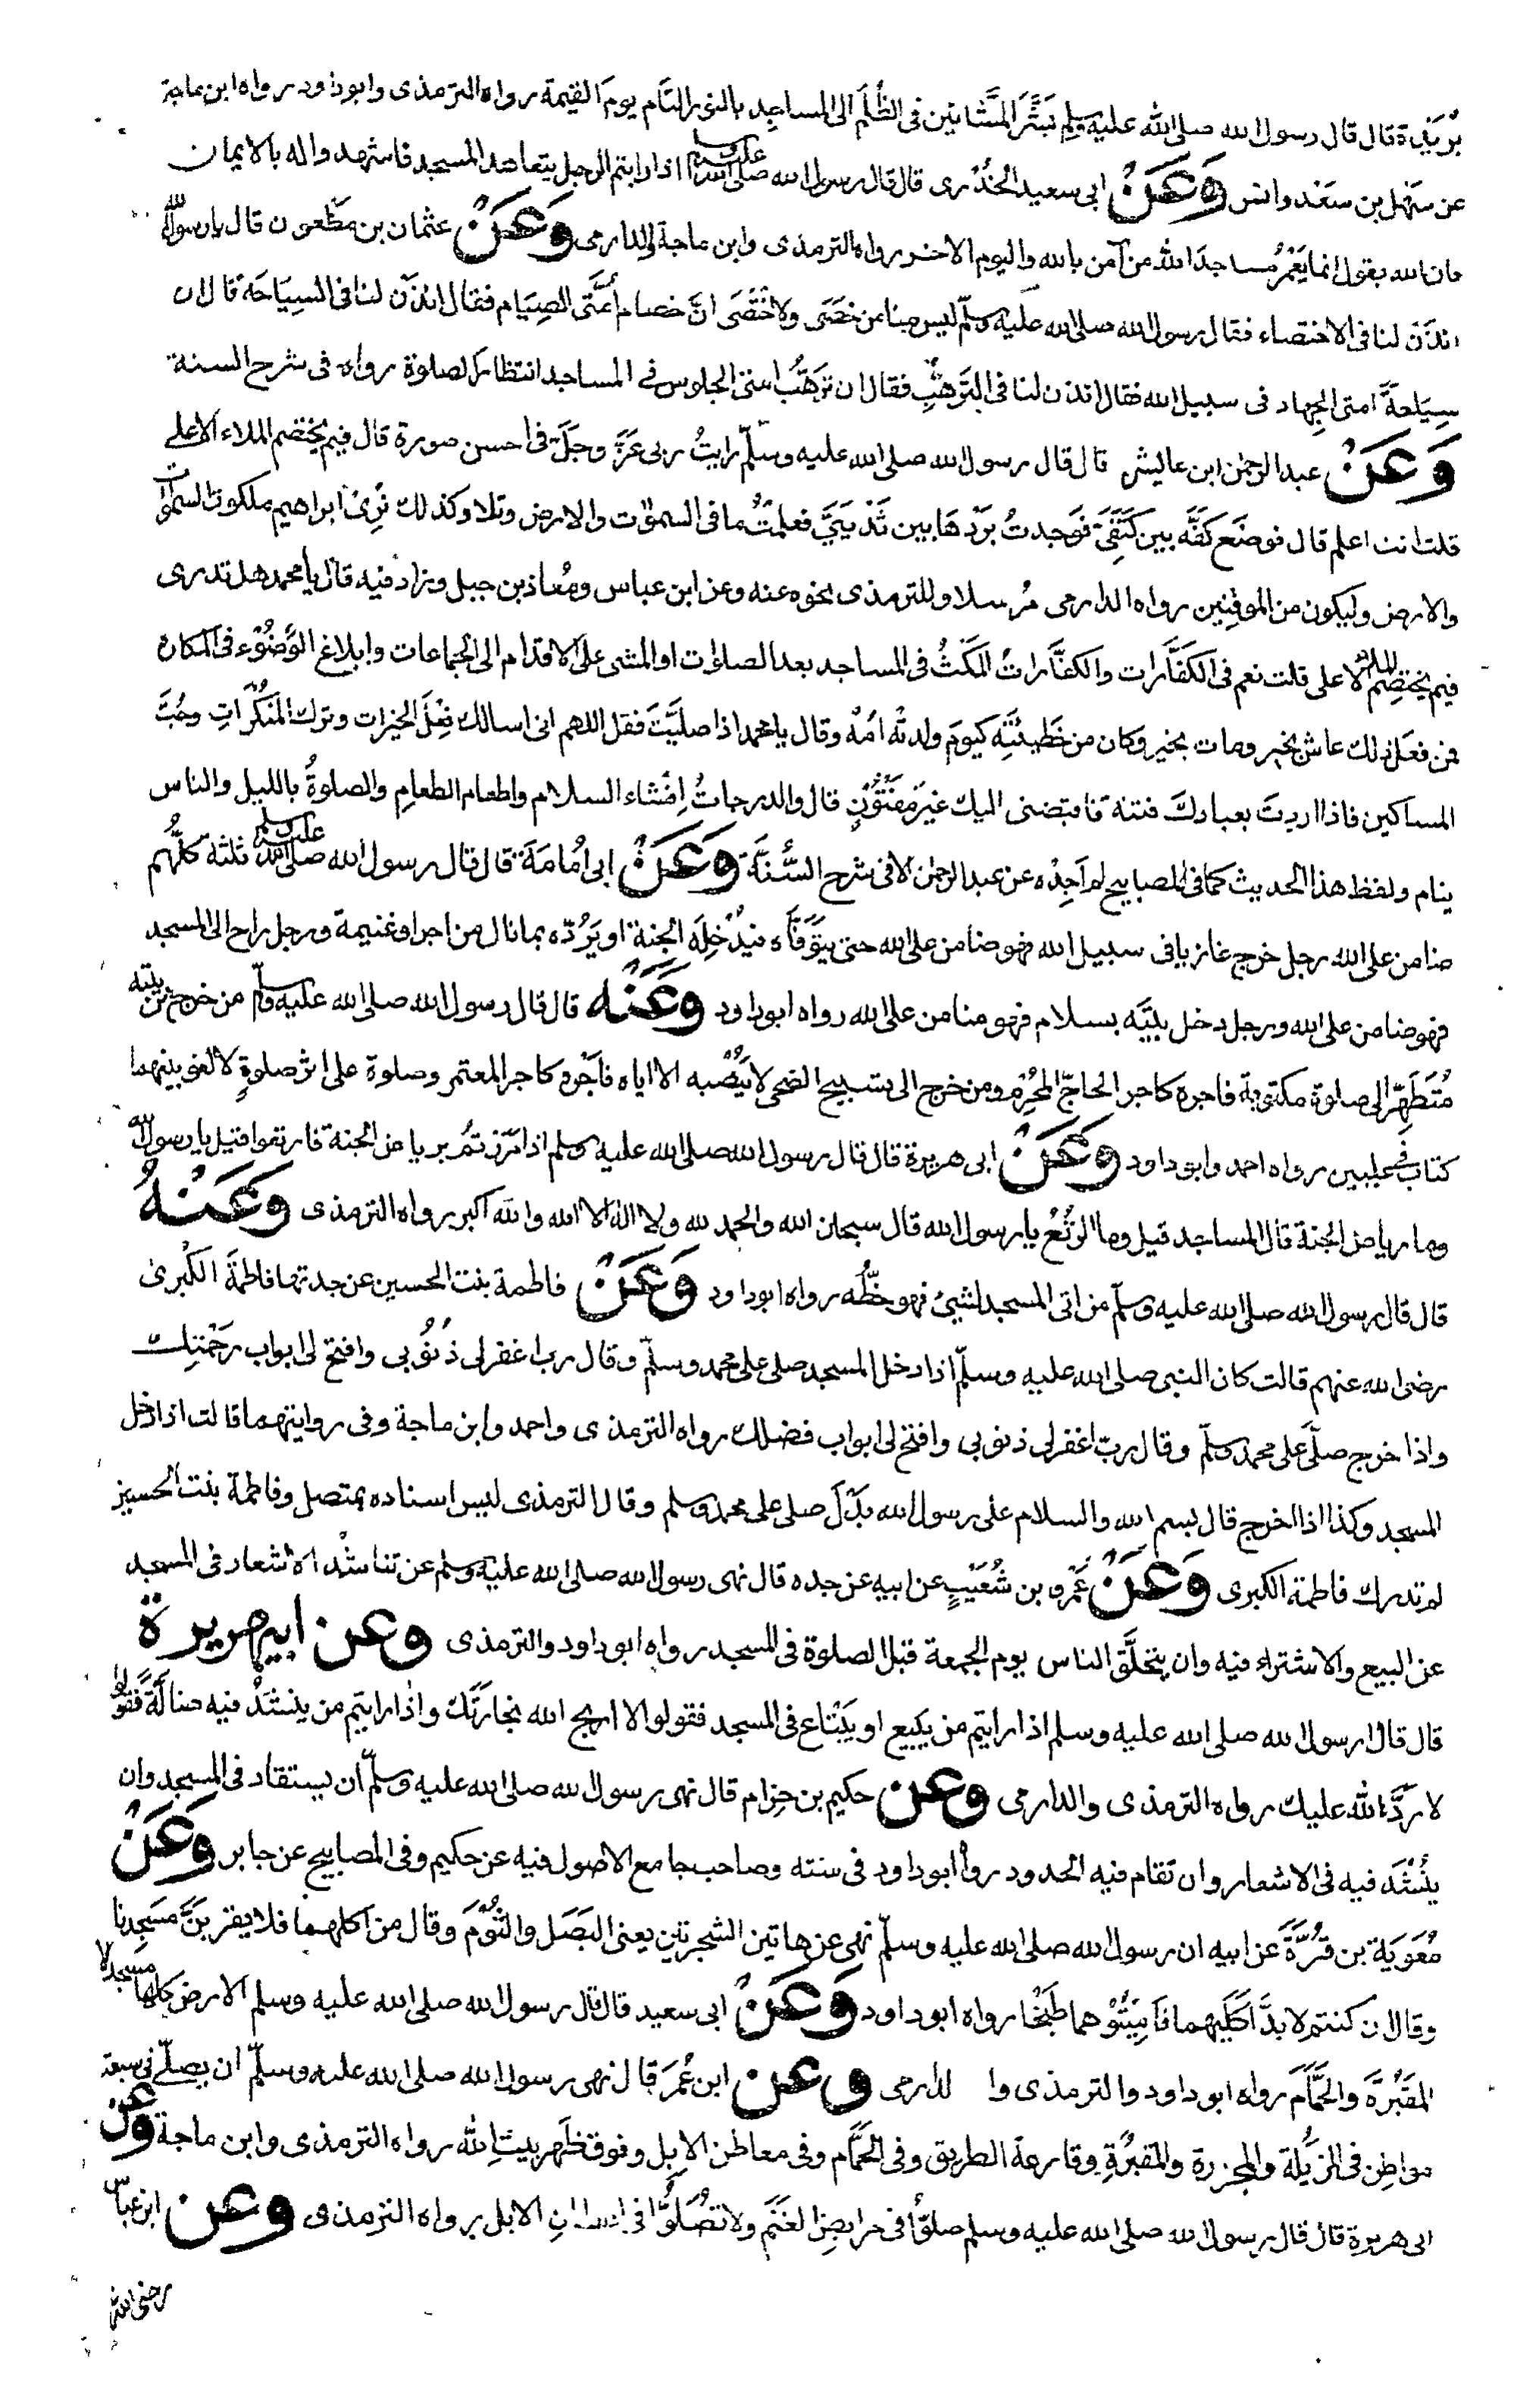 بُرَيْدة قال قال رسول الله صلى الله عليه وسلم بَشِّرِ المَشَّائين فى الظُّلَم الى المساجِد بالنور التام يومَ القيمة رواه الترمذى وابوداود رواه ابن ماجة
عن سَهْل بن سَعْد وانس وَعَنْ ابى سعيد الخُدْرى قال قال رسول الله صلى الله عليه وسلم اذا رايتم الرجل يتعاهد المسجد فاشهدوا له بالايمان
فان الله يقول انما يَعْمُرُ مساجدَ الله من آمن بالله واليوم الاخر رواه الترمذى وابن ماجة والدارمى وَعَنْ عثمان بن مظعون قال يا رسول الله
ائذَنْ لنا فى الاختصاء فقال رسول الله صلى الله عليه وسلّم ليس منا من خَصَى ولا اخْتَصَى انَّ خصاء أمَّتى الصِيَام فقال ائذَنْ لنا فى السِيَاحَة قال ان
سِيَاحَةَ امتى الجِهاد فى سبيل الله فقال ائذن لنا فى التَرَهُّبِ فقال ان تَرَهُّبَ امتى الجلوس فى المساجد انتظار الصلوة رواه فى شرح السنة
وَعَنْ عبد الرحمن ابن عايش قال قال رسول الله صلى الله عليه وسلّم رايتُ ربى عَزَّ وجَلَّ فى احسن صورة قال فيم يختصم الملاء الاعلى
قلت انت اعلم قال فوضَع كَفَّه بين كَتِفَىَّ فوَجدتُ بَرْدَهَا بين ثَدْيَيَّ فعلمتُ ما فى السموٰت والارض وتلا وكذلك نُرِىْ ابراهيم ملكوت السموات
والارض وليكون من الموقِنِين رواه الدارمى مُرسلا وللترمذى نحوه عنه وعن ابن عباس ومُعاذ بن جبل وزاد فيه قال يا محمد هل تدرى
فيم يختصِم الملاء الاعلى قلت نعم فى الكَفَّارات والكفَّاراتُ المَكْثُ فى المساجد بعد الصلوٰت او المشى على الاقدام الى الجماعات وابلاغ الوُضُوْء فى المكاره
فمن فعَل ذلك عاش بخير ومات بخير وكان من خَطِيئَتِه كيومَ ولدتْه امُّهْ وقال يا محمد اذا صليَّتَ فقل اللهم انى اسالك فِعْلَ الخيرات وترك المُنكَراتِ وحُبَّ
المساكين فاذا اردتَ بعبادكَ فتنة فاقبضنى اليك غيرَ مَفْتُوْنٍ قال والدرجاتُ إفشاء السلام واطعام الطعامِ والصلوةُ بالليل والناس
ينام ولفظ هذا الحديث كما فى المصابيح لم اَجِدْه عن عبد الرحمن الا فى شرح السُّنَّة وَعَنْ ابى اُمَامَة قال قال رسول الله صلى الله عليه وسلم ثلثة كلُّهم
ضامن على الله رجل خرج غازيا فى سبيل الله فهو ضامن على الله حتى يَتَوَفَّاه فيُدْخِلَه الجنة او يَرُدَّه بما نال من اجر او غنيمة ورجل راح الى المسجد
فهو ضامن على الله ورجل دخل بيتَه بسلام فهو ضامن على الله رواه ابوداود وَعَنْه قال قال رسول الله صلى الله عليه وسلّم من خرج من بيته
مُتَطَهِّرا الى صلوة مكتوبة فاجره كاجر الحاجّ المُحْرِم ومن خرج الى تسبيح الضحى لا يُنْصِبه الا اياه فاَجْره كاجر المعتمر وصلوة على اثر صلوةٍ لا لغو بينهما
كتاب فى عليين رواه احمد وابوداود وَعَنْ ابى هريرة قال قال رسول الله صلى الله عليه وسلم اذا مَرَرتمُ برياض الجنة فارتعوا قيل يا رسول الله
وما رياض الجنة قال المساجد قيل وما الرَتْعُ يا رسول الله قال سبحان الله والحمد لله ولا اله الا الله والله اكبر رواه الترمذى وَعَنْهُ
قال قال رسول الله صلى الله عليه وسلّم من اتى المسجد لشيئ فهو حظُّه رواه ابوداود وَعَنْ فاطمة بنت الحسين عن جدتها فاطمةَ الكُبرىٰ
رضى الله عنهم قالت كان النبى صلى الله عليه وسلّم اذا دخل المسجد صلى على محمد وسلّم وقال رب اغفر لى ذُنُوبى وافتح لى ابواب رَحْمَتِك
واذا خرج صلّى على محمد وسلّم وقال ربّ اغفر لى ذنوبى وافتح لى ابواب فضلك رواه الترمذى واحمد وابن ماجة وفى روايتهما قالت اذا دخل
المسجد وكذا اذا خرج قال بسم الله والسلام على رسول الله بَدَلَ صلى على محمد وسلم وقال الترمذى ليس اسناده بمتصل وفاطمة بنت الحسين
لم تدرك فاطمة الكبرى وَعَنْ عَمْرو بن شُعَيْبٍ عن ابيه عن جده قال نهى رسول الله صلى الله عليه وسلم عن تناشُد الاشعار فى المسجد
عن البيع والاشتراء فيه وان يتحلَّق الناس يوم الجمعة قبل الصلوة فى المسجد رواه ابوداود والترمذى وعن ابيهريرة
قال قال رسول الله صلى الله عليه وسلم اذا رايتم من يَبيع او يَبْتَاع فى المسجد فقولوا لا اربح الله تجارتَك واذا رايتم من ينشُدْ فيه ضالَّةً فقولوا
لا ردَّ الله عليك رواه الترمذى والدارمى وعن حكيم بن حِزام قال نهى رسول الله صلى الله عليه وسلّم أن يستقاد فى المسجد وان
يُنْشَد فيه فى الاشعار وان تقام فيه الحدود رواه ابوداود فى سننه وصاحب جامع الاصول فيه عن حكيم وفى المصابيح عن جابر وَعَنْ
مُعٰوِيَة بن قُرَّةَ عن ابيه ان رسول الله صلى الله عليه وسلّم نهى عن هاتين الشجرتين يعنى البَصَل والثُوْمَ وقال من اكلهما فلا يقربَنَّ مَسْجِدنا
وقال ان كنتم لا بدَّ اٰكِلِيهما فَاَمِيْتُوْهما طَبْخًا رواه ابوداود وَعَنْ ابى سعيد قال قال رسول الله صلى الله عليه وسلم الارض كلها مسجد الا
المقبُرَة والحَمَّامَ رواه ابوداود والترمذى والدارمى وعن ابن عُمَرَ قال نهى رسول الله صلى الله عليه وسلّم ان يصلّى فى سبعة
مواطِن فى المَزْبَلة والمجزرة والمقبُرةِ وقارعة الطريق وفى الحَمَّام وفى معاطن الابل وفوق ظَهر بيت الله رواه الترمذى وابن ماجة وعن
ابى هريرة قال قال رسول الله صلى الله عليه وسلم صلّوا فى مرابِض الغَنَم ولا تُصَلُّوا فى اعطانِ الابل رواه الترمذى وعن ابن عباس
رضى الله